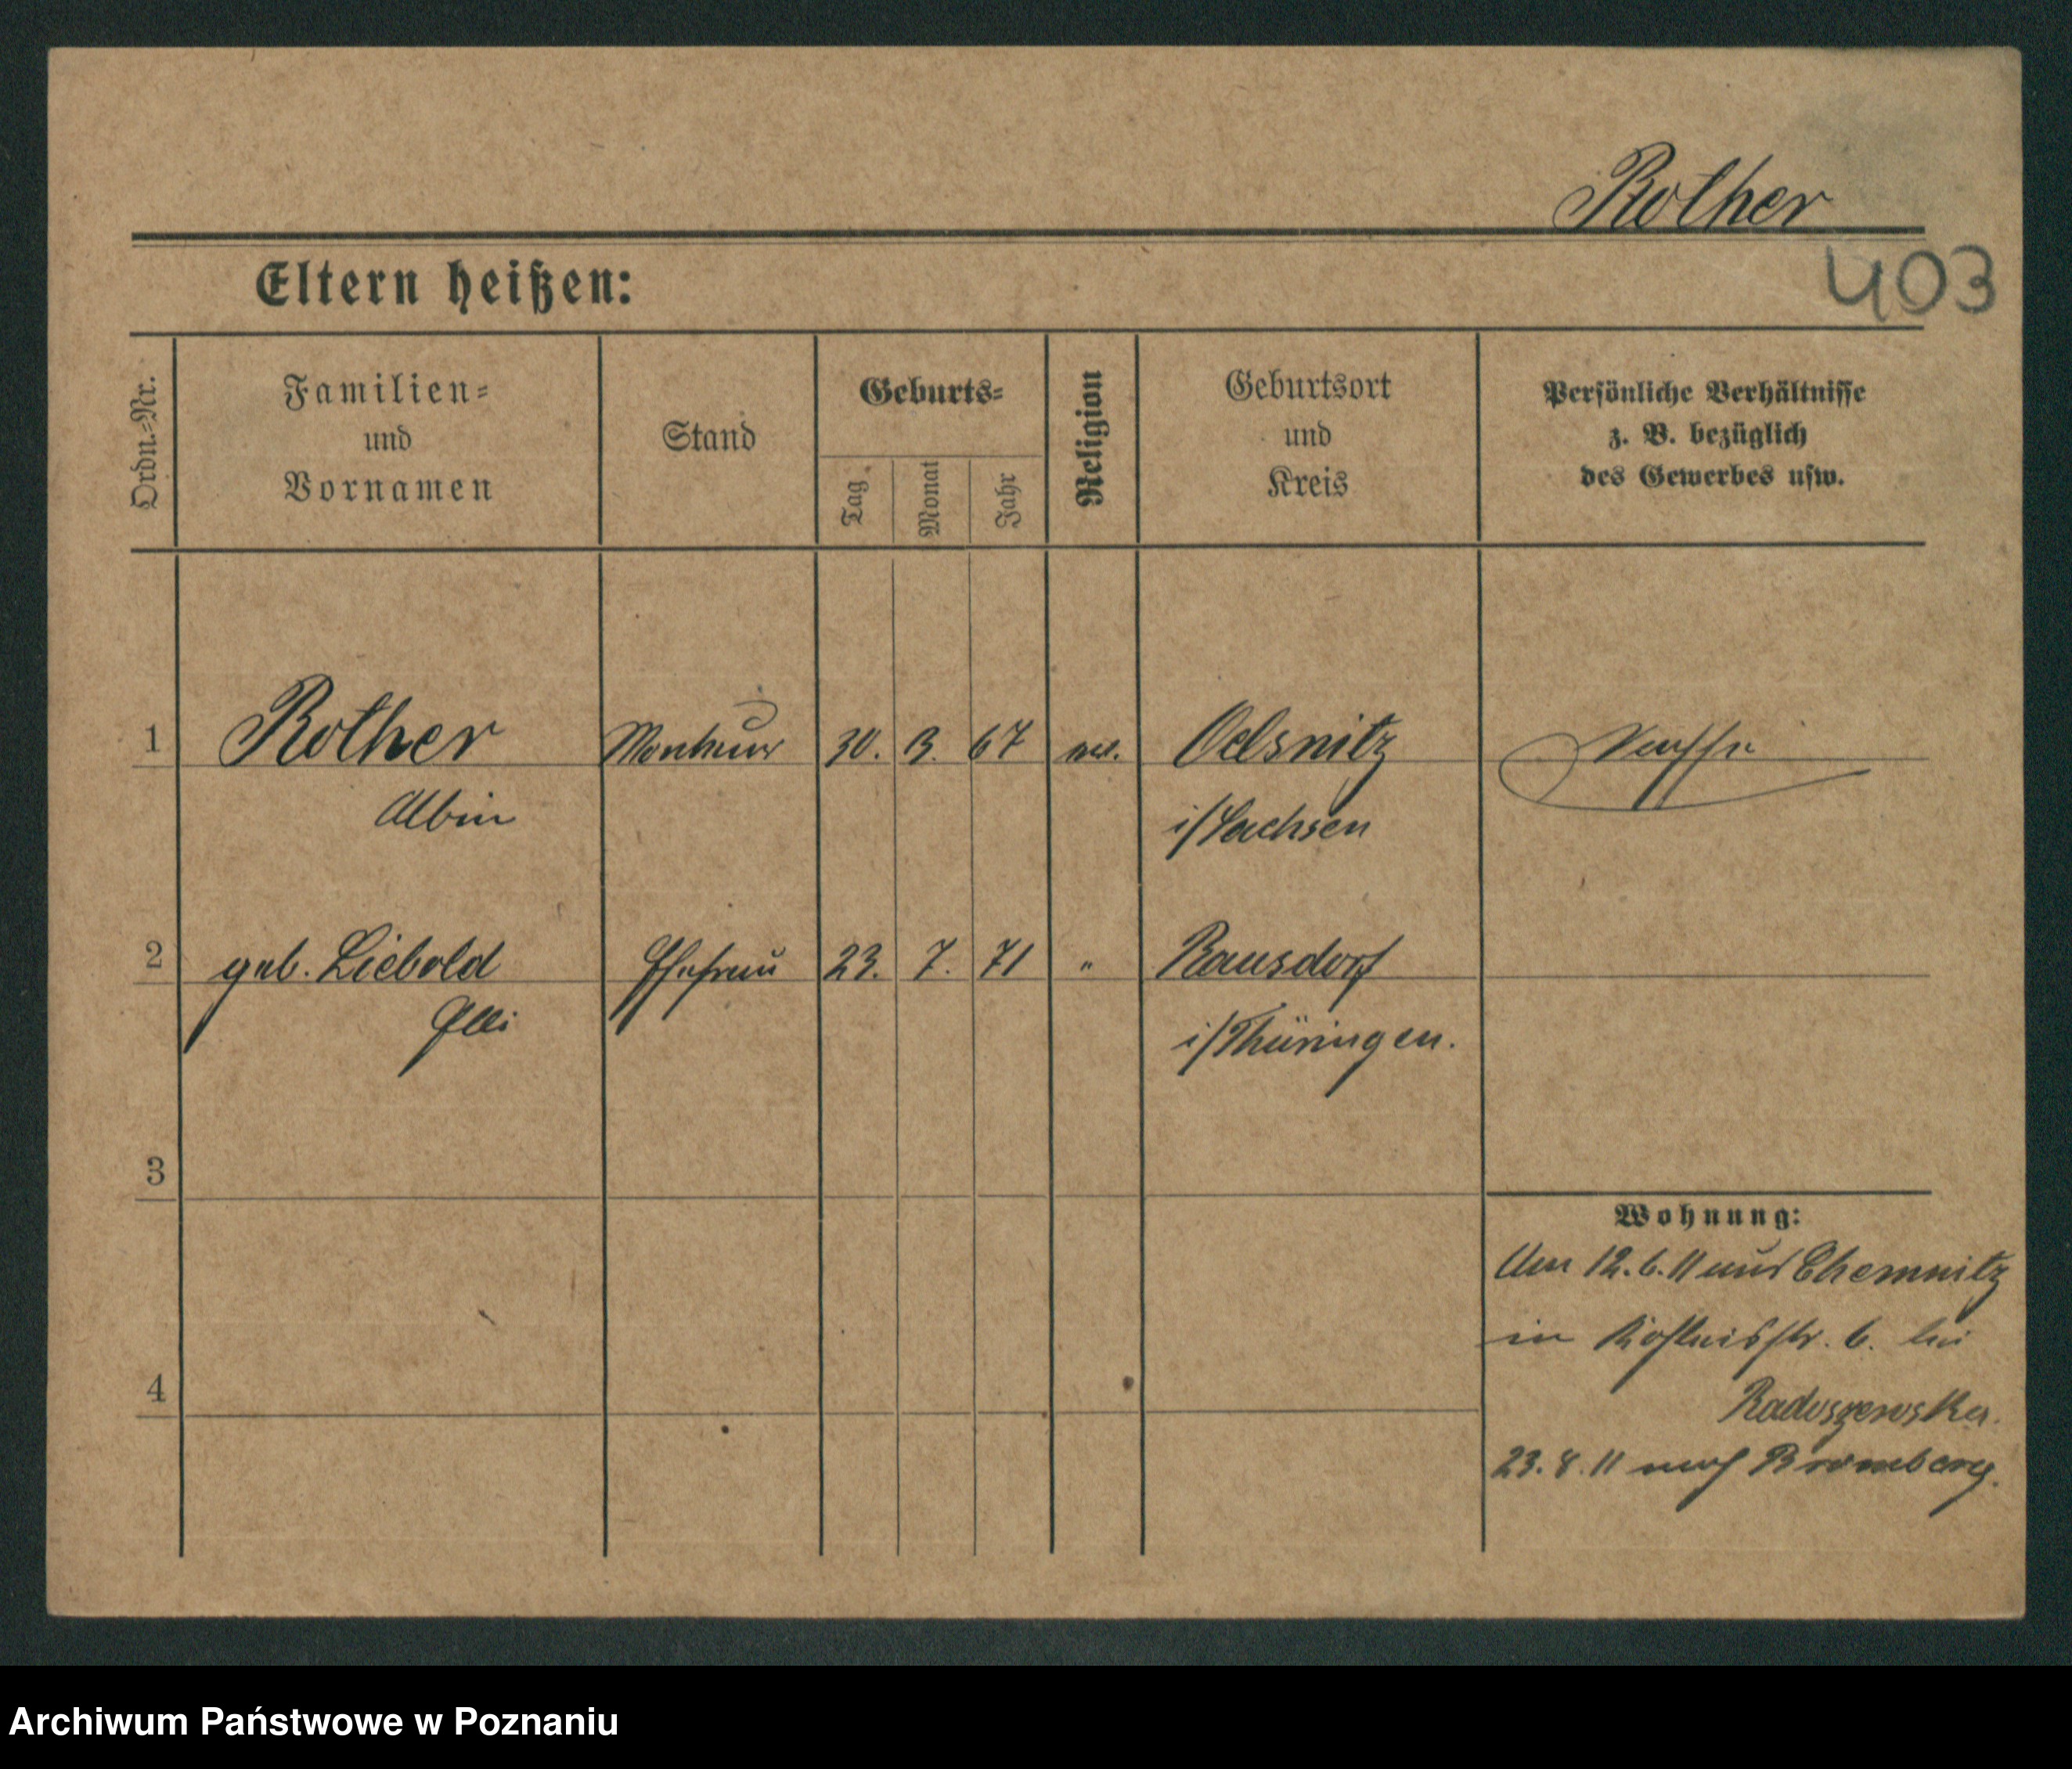 Rother
403
Eltern heißen:
Ordn.=Nr.
Familien=
und
Vornamen
Stand
Geburts=
Tag
Monat
Jahr
Religion
Geburtsort
und
Kreis
Persönliche Verhältnisse
z. B. bezüglich
des Gewerbes usw.
1 Rother Monteur 30. 3. 67 ev. Oelsnitz
Albin i/Sachsen
2 geb. Liebold Ehefrau 23. 7. 71 " Rausdorf
Elli i/Thüringen.
3
4
Wohnung:
Am 12.6.11 aus Chemnitz
in 6. bei
Radoszewska.
23.8.11 nach Bromberg.
Archiwum Państwowe w Poznaniu